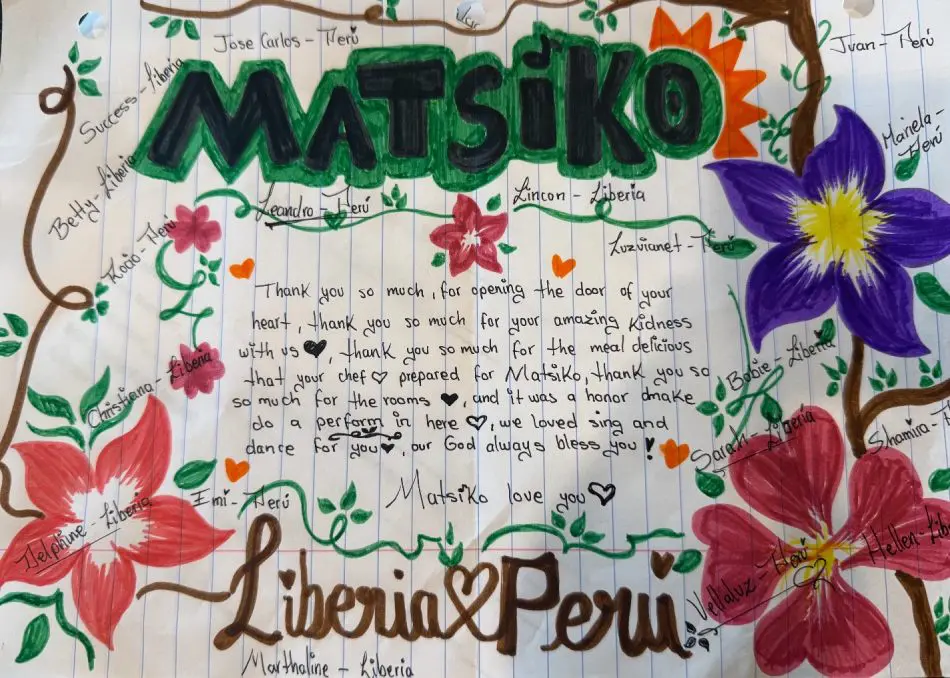 Jose Carlos - Perú
Juan - Perú
Success - Liberia
MATSIKO
Mariela -
Perú
Betty - Liberia
Leandro - Perú
Lincon - Liberia
Rocio - Perú
Luzvianet - Perú
Thank you so much, for opening the door of your
heart, thank you so much for your amazing kidness
with us ♥, thank you so much for the meal delicious
that your chef ♡ prepared for Matsiko, thank you so
so much for the rooms ♥, and it was a honor make
do a perform in here ♡, we loved sing and
dance for you ♥, our God always bless you !
Matsiko love you ♡
Christiana - Liberia
Bobie - Liberia
Sarah - Liberia
Shamira -
Emi - Perú
Delphine - Liberia
Hellen - Lib
Vellaluz - Perú
Liberia ♡ Perú
Marthaline - Liberia